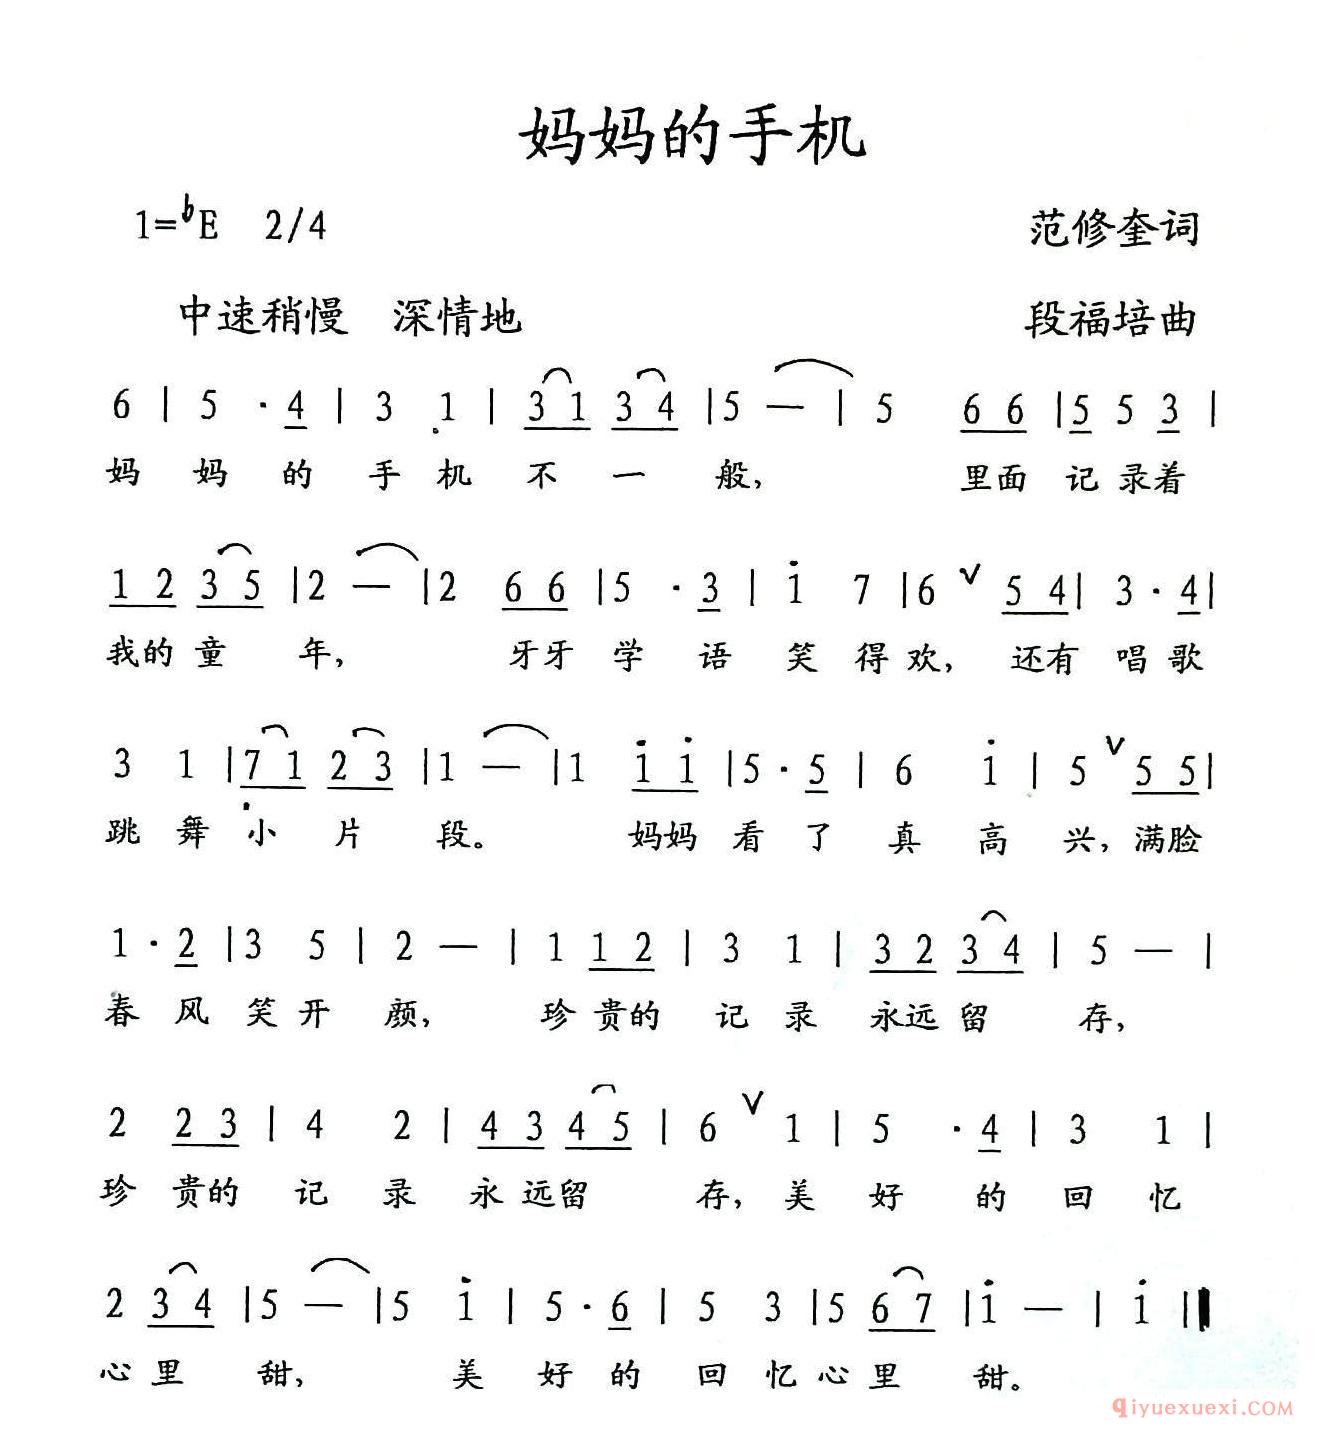 妈妈的手机
1=bE 2/4 范修奎词
中速稍慢 深情地 段福培曲
6 | 5 · 4 | 3 1 | 3 1 3 4 | 5 — | 5 6 6 | 5 5 3 |
妈 妈 的 手 机 不 一 般, 里面 记 录着
1 2 3 5 | 2 — | 2 6 6 | 5 · 3 | i 7 | 6 ∨ 5 4 | 3 · 4 |
我的 童 年, 牙牙 学 语 笑 得 欢, 还有 唱 歌
3 1 | 7 1 2 3 | 1 — | 1 i i | 5 · 5 | 6 i | 5 ∨ 5 5 |
跳 舞 小 片 段。 妈妈 看 了 真 高 兴, 满脸
1 · 2 | 3 5 | 2 — | 1 1 2 | 3 1 | 3 2 3 4 | 5 — |
春 风 笑 开 颜, 珍 贵的 记 录 永远 留 存,
2 2 3 | 4 2 | 4 3 4 5 | 6 ∨ 1 | 5 · 4 | 3 1 |
珍 贵的 记 录 永 远留 存, 美 好 的 回 忆
2 3 4 | 5 — | 5 i | 5 · 6 | 5 3 | 5 6 7 | i — | i ||
心 里 甜, 美 好 的 回 忆 心 里 甜。
qiyuexuexi.COM